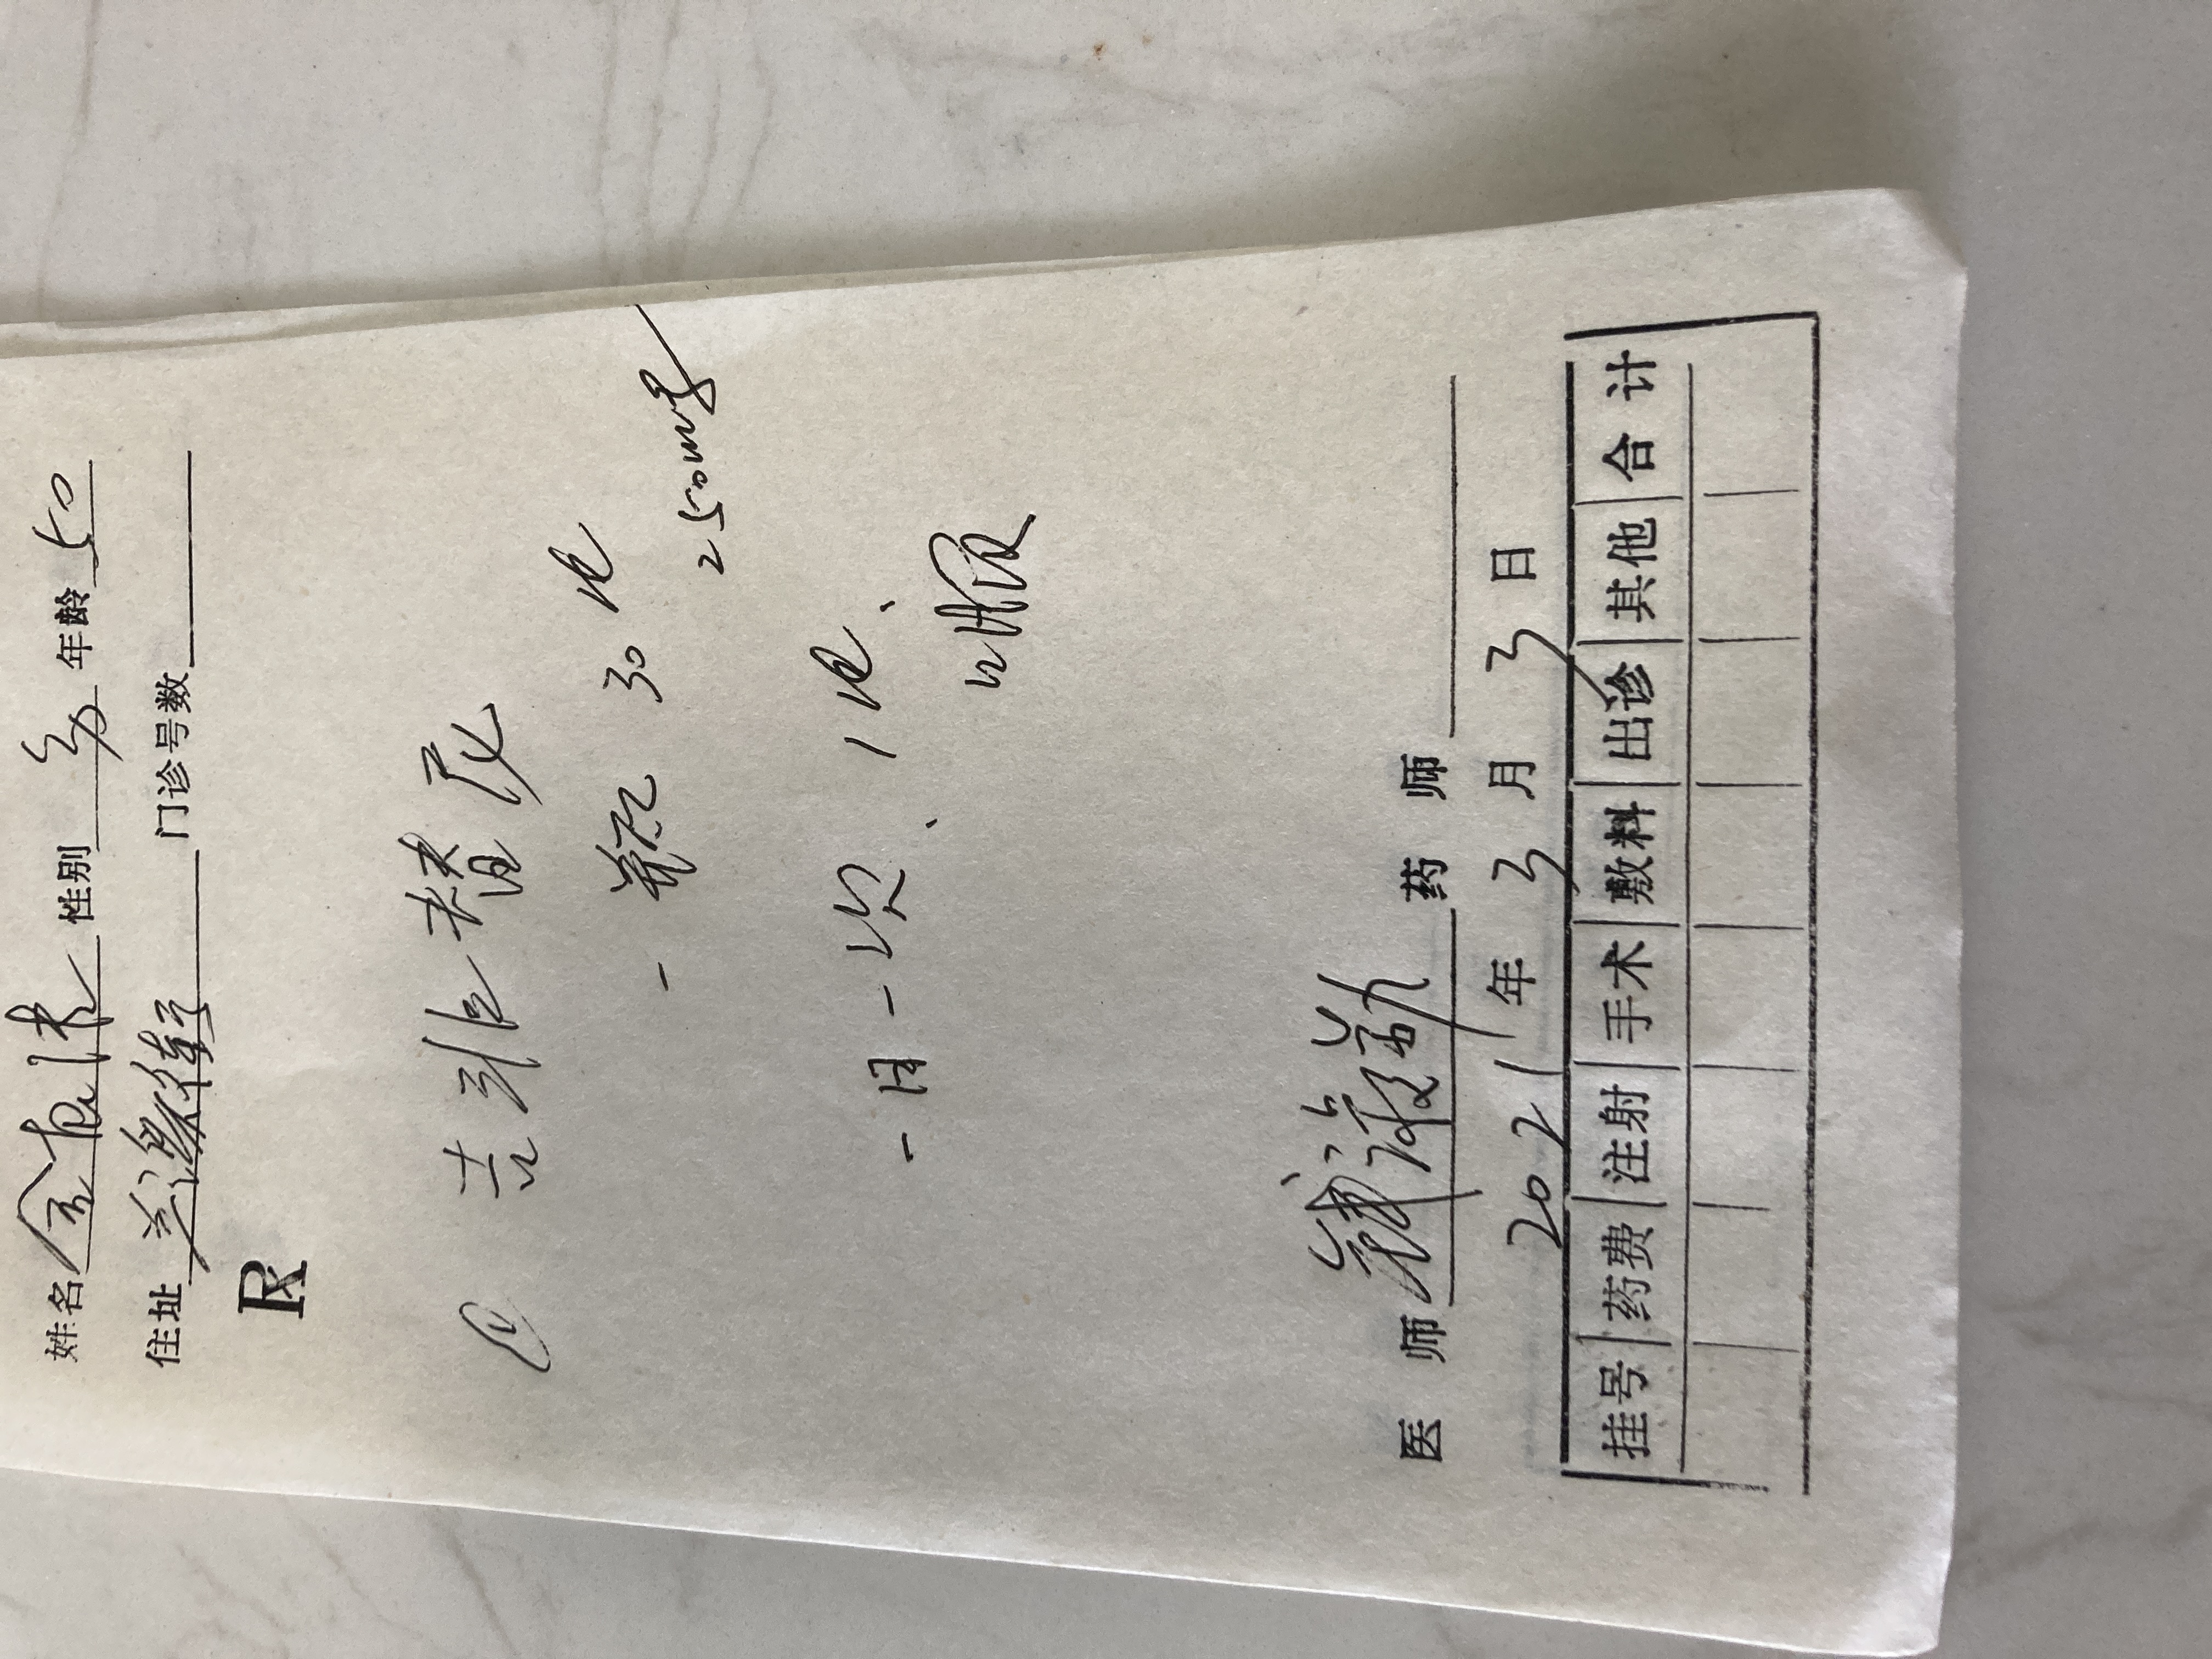 姓名 金 法 性别 男 年龄 50
住址 兰溪街 门诊号数
R
吉非替尼
一瓶 30粒
250mg
一日一次、1粒、
口服
医 师 钱 勤 药 师
2021 年 3 月 3 日
挂号 药费 注射 手术 敷料 出诊 其他 合 计